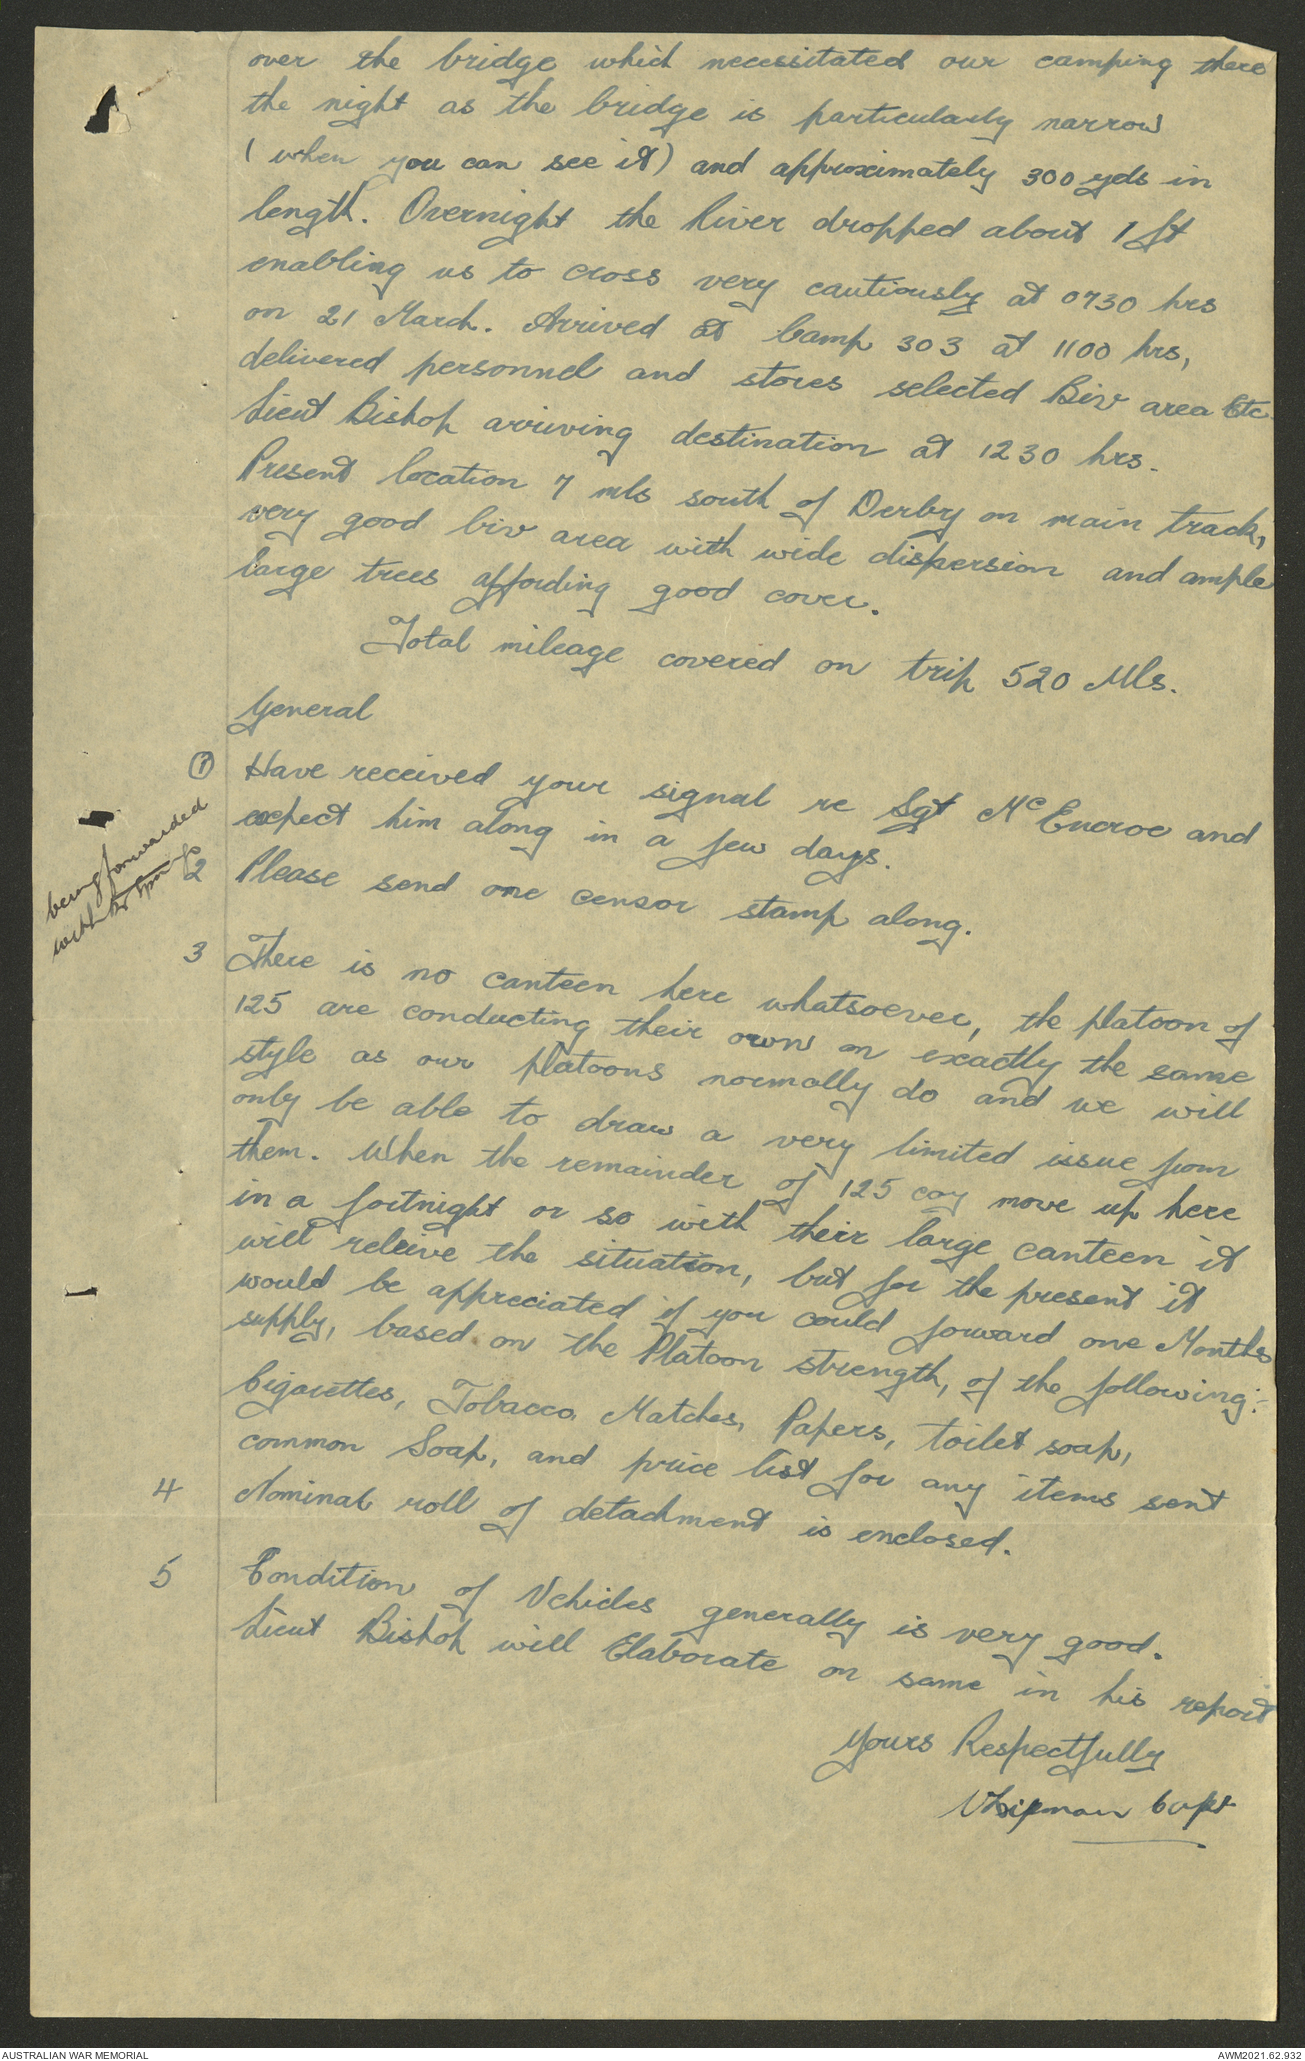 over the bridge which necessitated our camping there
the night as the bridge is particularly narrow
(when you can see it) and approximately 300 yds in
length. Overnight the River dropped about 1 ft
enabling us to cross very cautiously at 0730 hrs
on 21 March. Arrived at Camp 303 at 1100 hrs,
delivered personnel and stores selected Biv area Etc
Lieut Bishop arriving destination at 1230 hrs.
Present location 7 mls south of Derby on main track,
very good biv area with wide dispersion and ample
large trees affording good cover.
Total mileage covered on trip 520 Mls.
General
1 Have received your signal re Sgt McEncroe and
expect him along in a few days.
being forwarded
with
2 Please send one censor stamp along.
3 There is no canteen here whatsoever, the platoon of
125 are conducting their own on exactly the same
style as our platoons normally do and we will
only be able to draw a very limited issue from
them. When the remainder of 125 coy move up here
in a fortnight or so with their large canteen it
will releive the situation, but for the present it
would be appreciated if you could forward one Months
supply, based on the Platoon strength, of the following:-
Cigarettes, Tobacco, Matches, Papers, toilet soap,
common Soap, and price list for any items sent
4 Nominal roll of detachment is enclosed.
5 Condition of Vehicles generally is very good.
Lieut Bishop will Elaborate on same in his report
Yours Respectfully
Capt
AUSTRALIAN WAR MEMORIAL
AWM2021.62.932